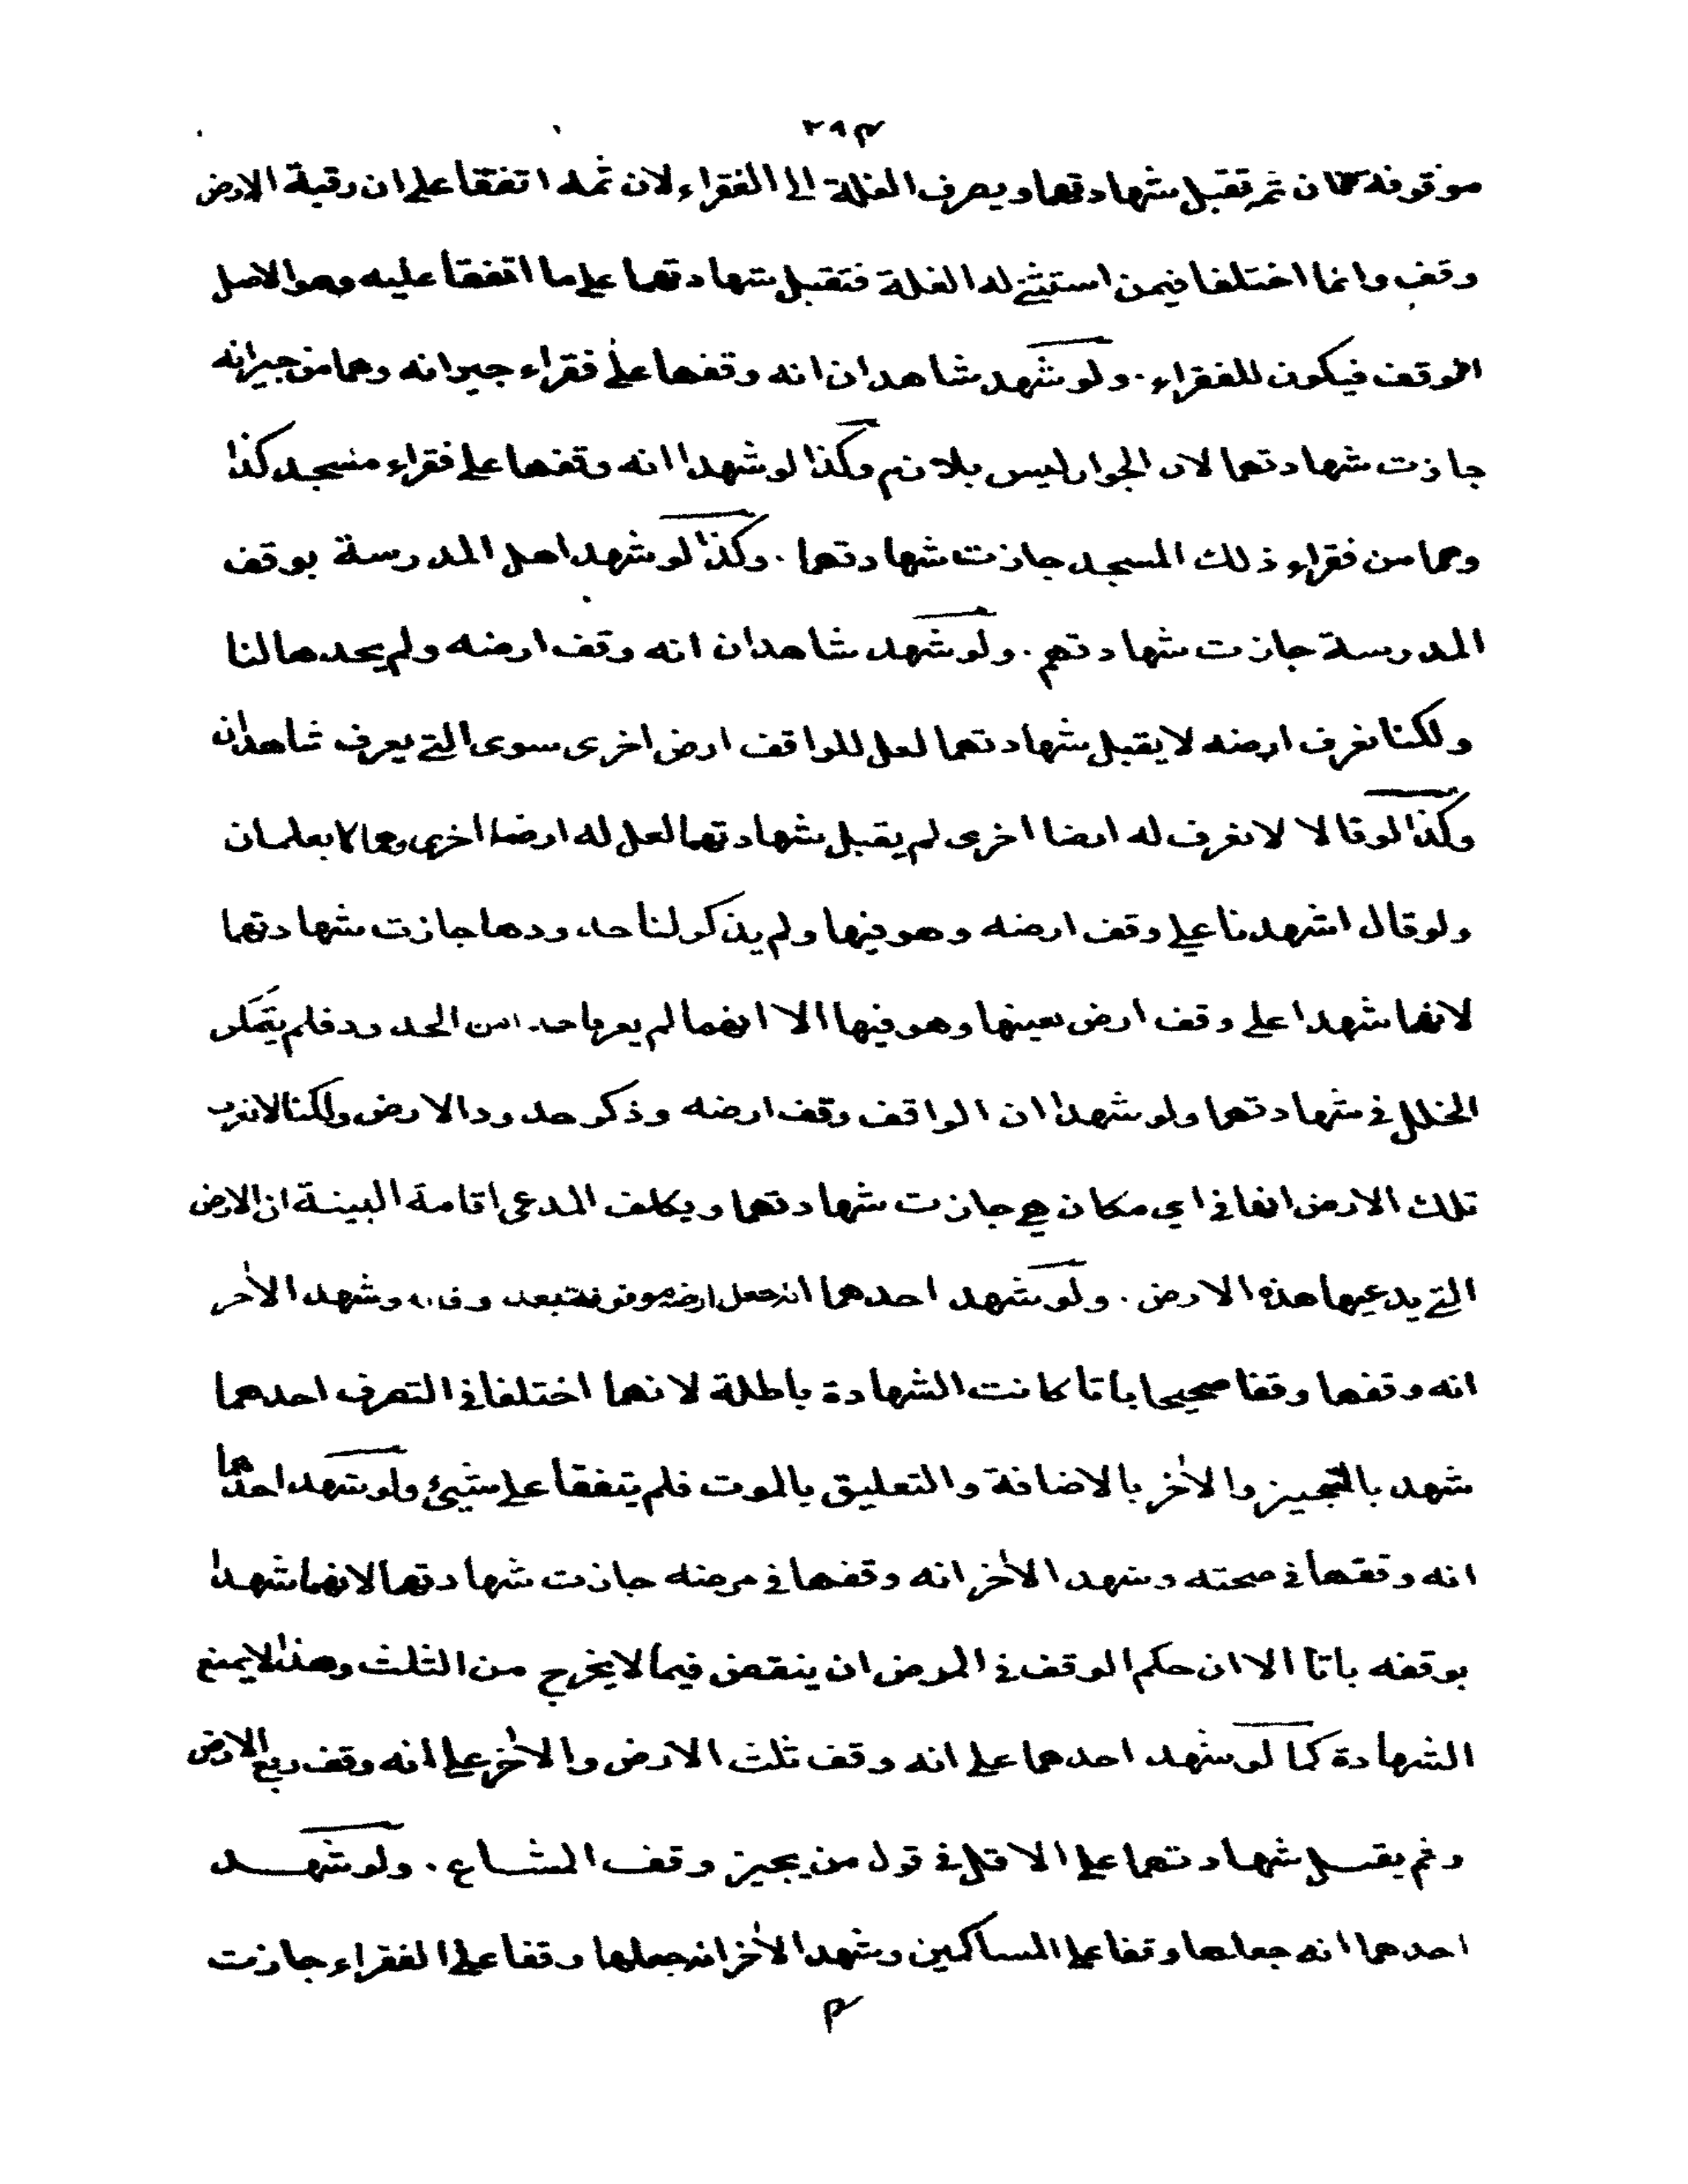 ٢٩٣
موقوفة كان ثم تقبل شهادتهما ويصرف الغلة الى الفقراء لان ثمه اتفقا على ان رقبة الارض
وقف وانما اختلفا فيمن استثنى له الغلة فتقبل شهادتهما على ما اتفقا عليه وهو الاصل
الوقف فيكون للفقراء . ولو شهد شاهدان انه وقفها على فقراء جيرانه وهما من جيرانه
جازت شهادتهما لان الجوار ليس بلازم وكذا لو شهدا انه وقفها على فقراء مسجد كذا
وهما من فقراء ذلك المسجد جازت شهادتهما . وكذا لو شهد اهل المدرسة بوقف
المدرسة جازت شهادتهم . ولو شهد شاهدان انه وقف ارضه ولم يحدها لنا
ولكنا نعرف ارضه لا يقبل شهادتهما لعل للواقف ارض اخرى سوى التى يعرف شاهدان
وكذا لو قالا لا نعرف له ارضا اخرى لم يقبل شهادتهما لعل له ارضا اخرى وهما لا يعلمان
ولو قال اشهدنا على وقف ارضه وهو فيها ولم يذكر لنا حدودها جازت شهادتهما
لانهما شهدا على وقف ارض بعينها وهو فيها الا انهما لم يعرفا حدا من الحدود فلم يتمكن
الخلل فى شهادتهما ولو شهدا ان الواقف وقف ارضه وذكر حدود الارض ولكنا لا نعرف
تلك الارض انها فى اى مكان هى جازت شهادتهما ويكلف المدعى اقامة البينة ان الارض
التى يدعيها هذه الارض . ولو شهد احدهما انه جعل ارضه موقوفة بعد وفاته وشهد الاخر
انه وقفها وقفا صحيحا باتا كانت الشهادة باطلة لانهما اختلفا فى التصرف احدهما
شهد بالتنجيز والاخر بالاضافة والتعليق بالموت فلم يتفقا على شيئ ولو شهد احدهما
انه وقفها فى صحته وشهد الاخر انه وقفها فى مرضه جازت شهادتهما لانهما شهدا
بوقفه باتا الا ان حكم الوقف فى المرض ان ينقض فيما لا يخرج من الثلث وهذا لا يمنع
الشهادة كما لو شهد احدهما على انه وقف ثلث الارض والاخر على انه وقف ربع الارض
وثم يقبل شهادتهما على الاقل فى قول من يجيز وقف المشاع . ولو شهد
احدهما انه جعلها وقفا على المساكين وشهد الاخر انه جعلها وقفا على الفقراء جازت